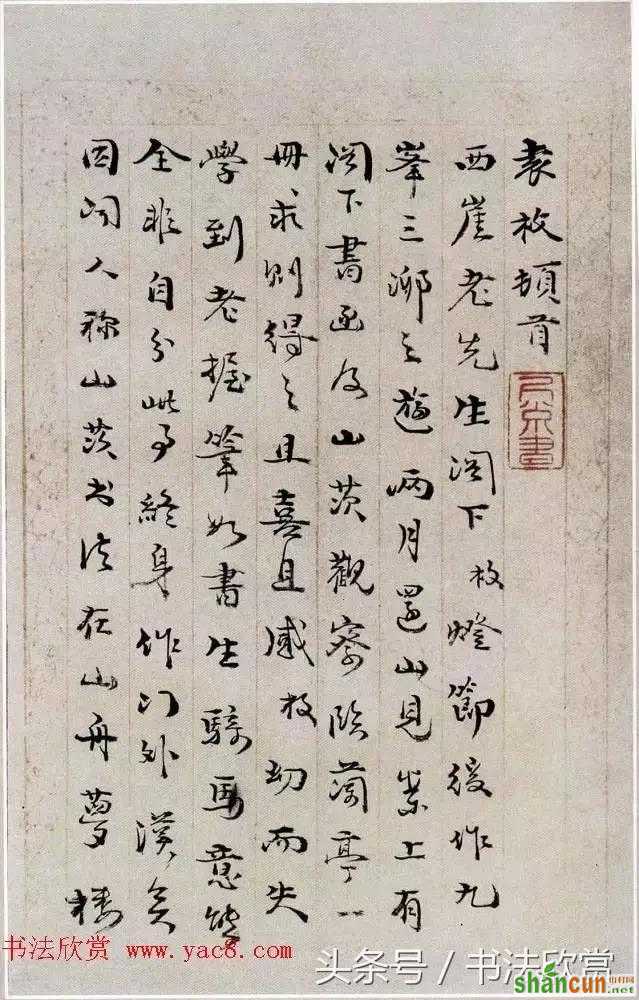 袁枚頓首
西崖老先生閣下枚燈節後作九
峯三泖之遊兩月還山見案上有
閣下書函及山茨觀察臨蘭亭一
冊求則得之且喜且感枚幼而失
學到老握筆如書生騎馬意態
全非自分此事終身作门外漢矣
因问人称山茨书法在山舟夢樓
书法欣赏 www.yac8.com
头条号/书法欣赏
shancun.net